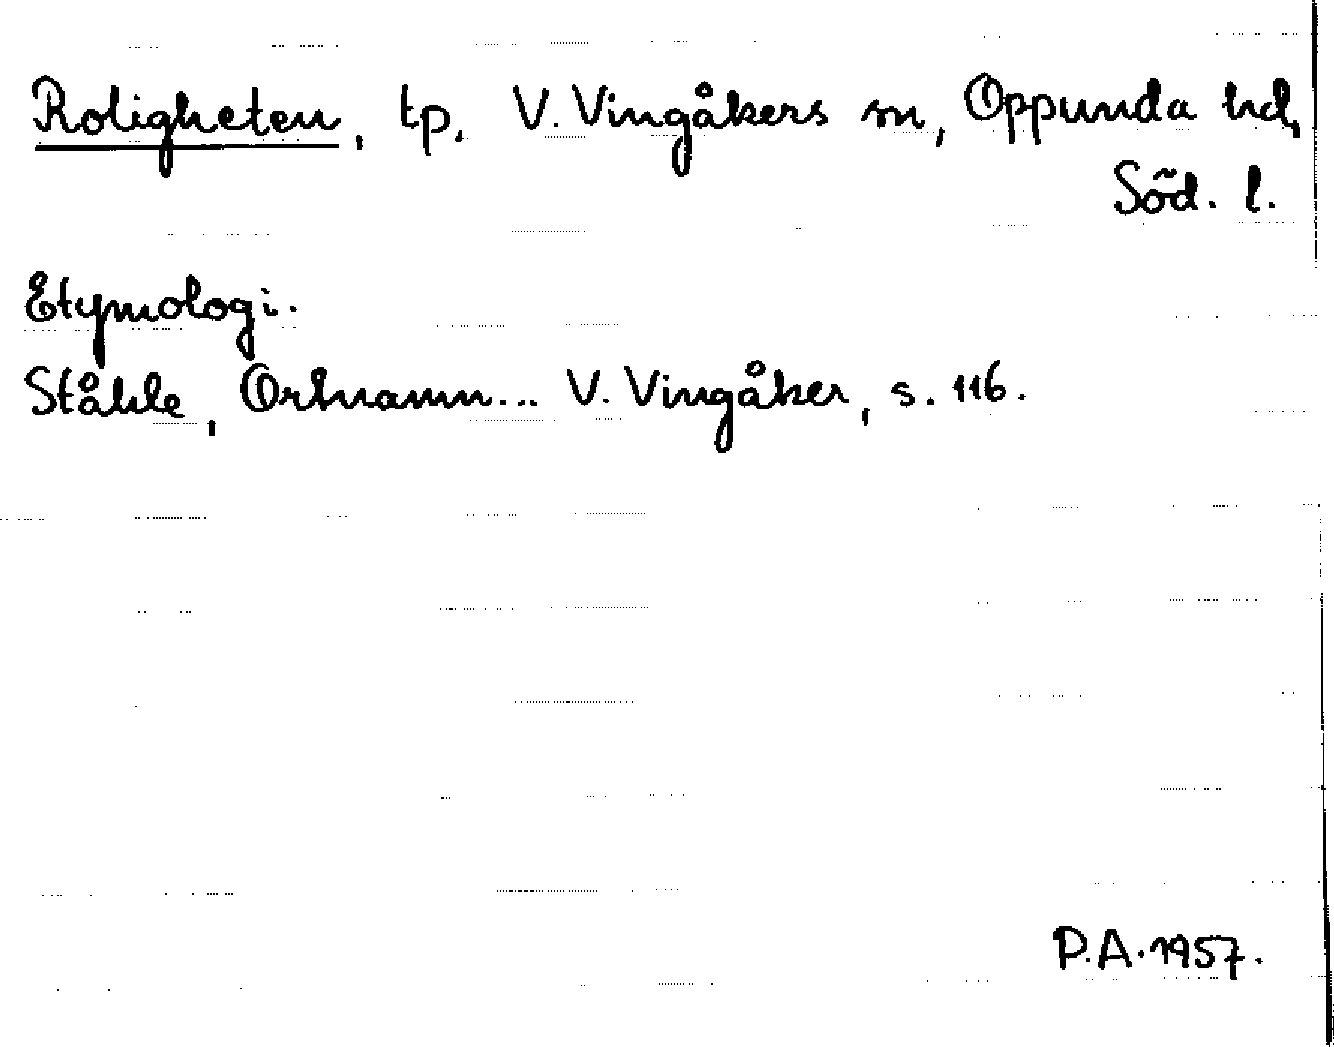 Roligheten, tp. V. Vingåkers sn, Oppunda hd,
Söd. l.
Etymologi.
Ståhle, Ortnamn... V. Vingåker, s. 116.
P.A. 1957.